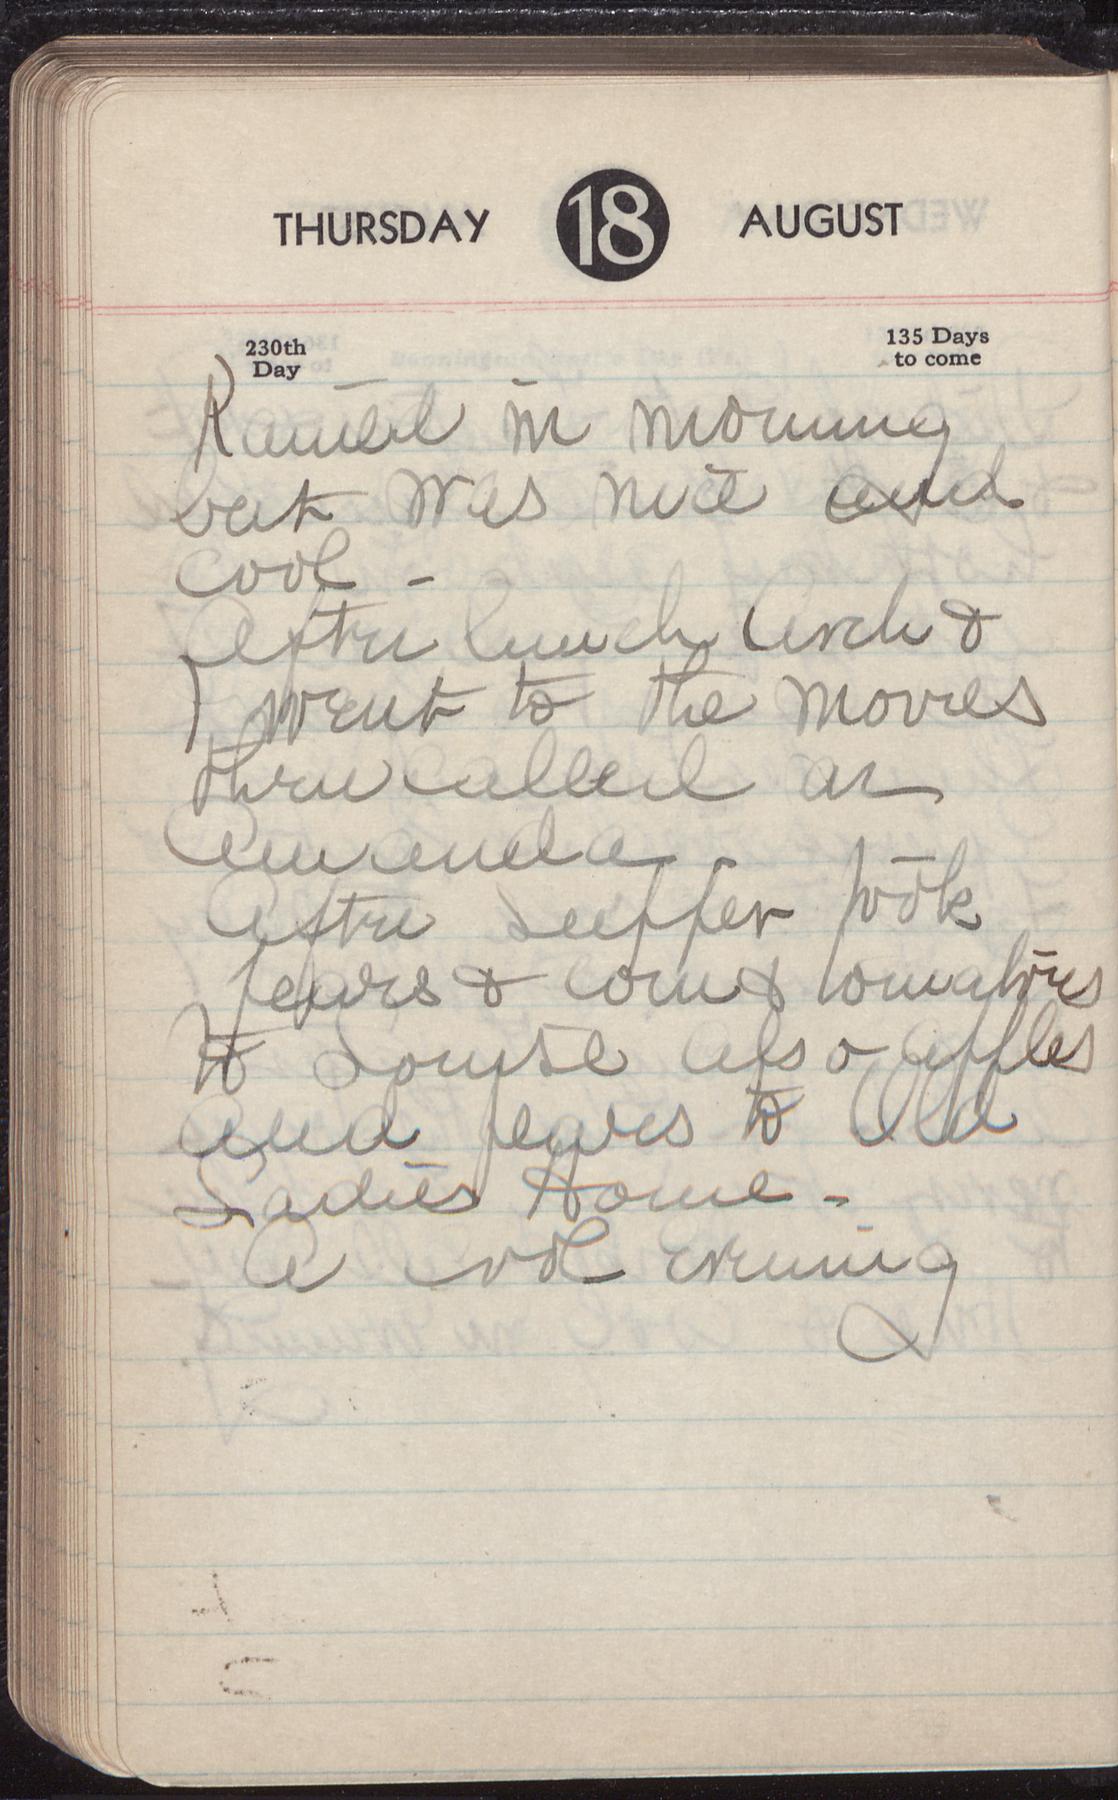 THURSDAY 18 AUGUST
230th Day
135 Days to come
Rained in morning
but was nice and
cool -
After lunch Arch &
I went to the movies
then called on
Amanda -
After supper took
pears & corn & tomatoes
to Louise also apples
and pears to Old
Ladies Home -
A cool evening